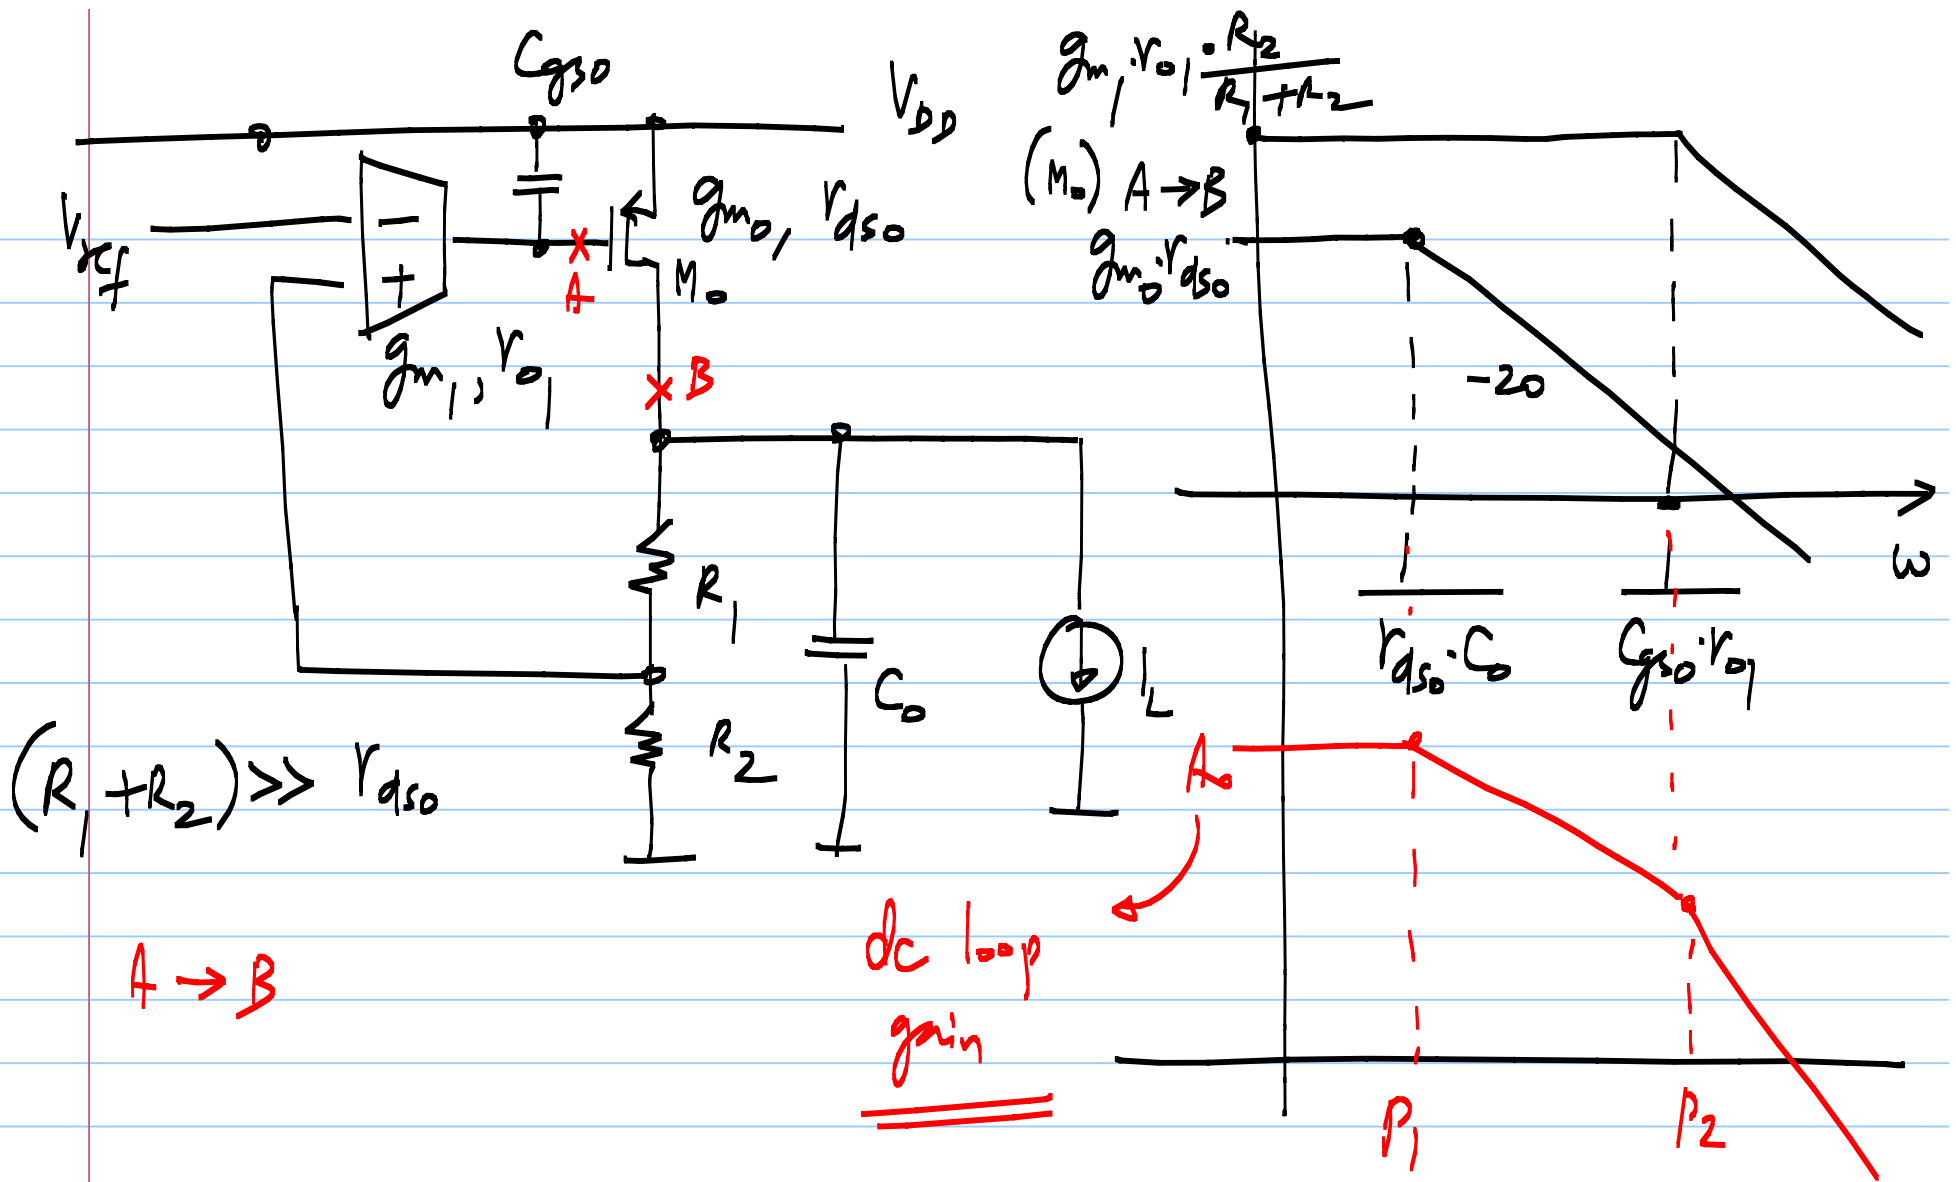 C_gs0
V_DD
V_ref
−
+
g_m0, r_ds0
M_0
A
g_m1, r_o1
B
R_1
R_2
C_0
I_L
(R_1 + R_2) >> r_ds0
A → B
g_m1·r_o1·R_2/(R_1+R_2)
(M_0) A → B
g_m0·r_ds0
-20
ω
r_ds0·C_0
C_gs0·r_o1
A_0
dc loop
gain
P_1
P_2